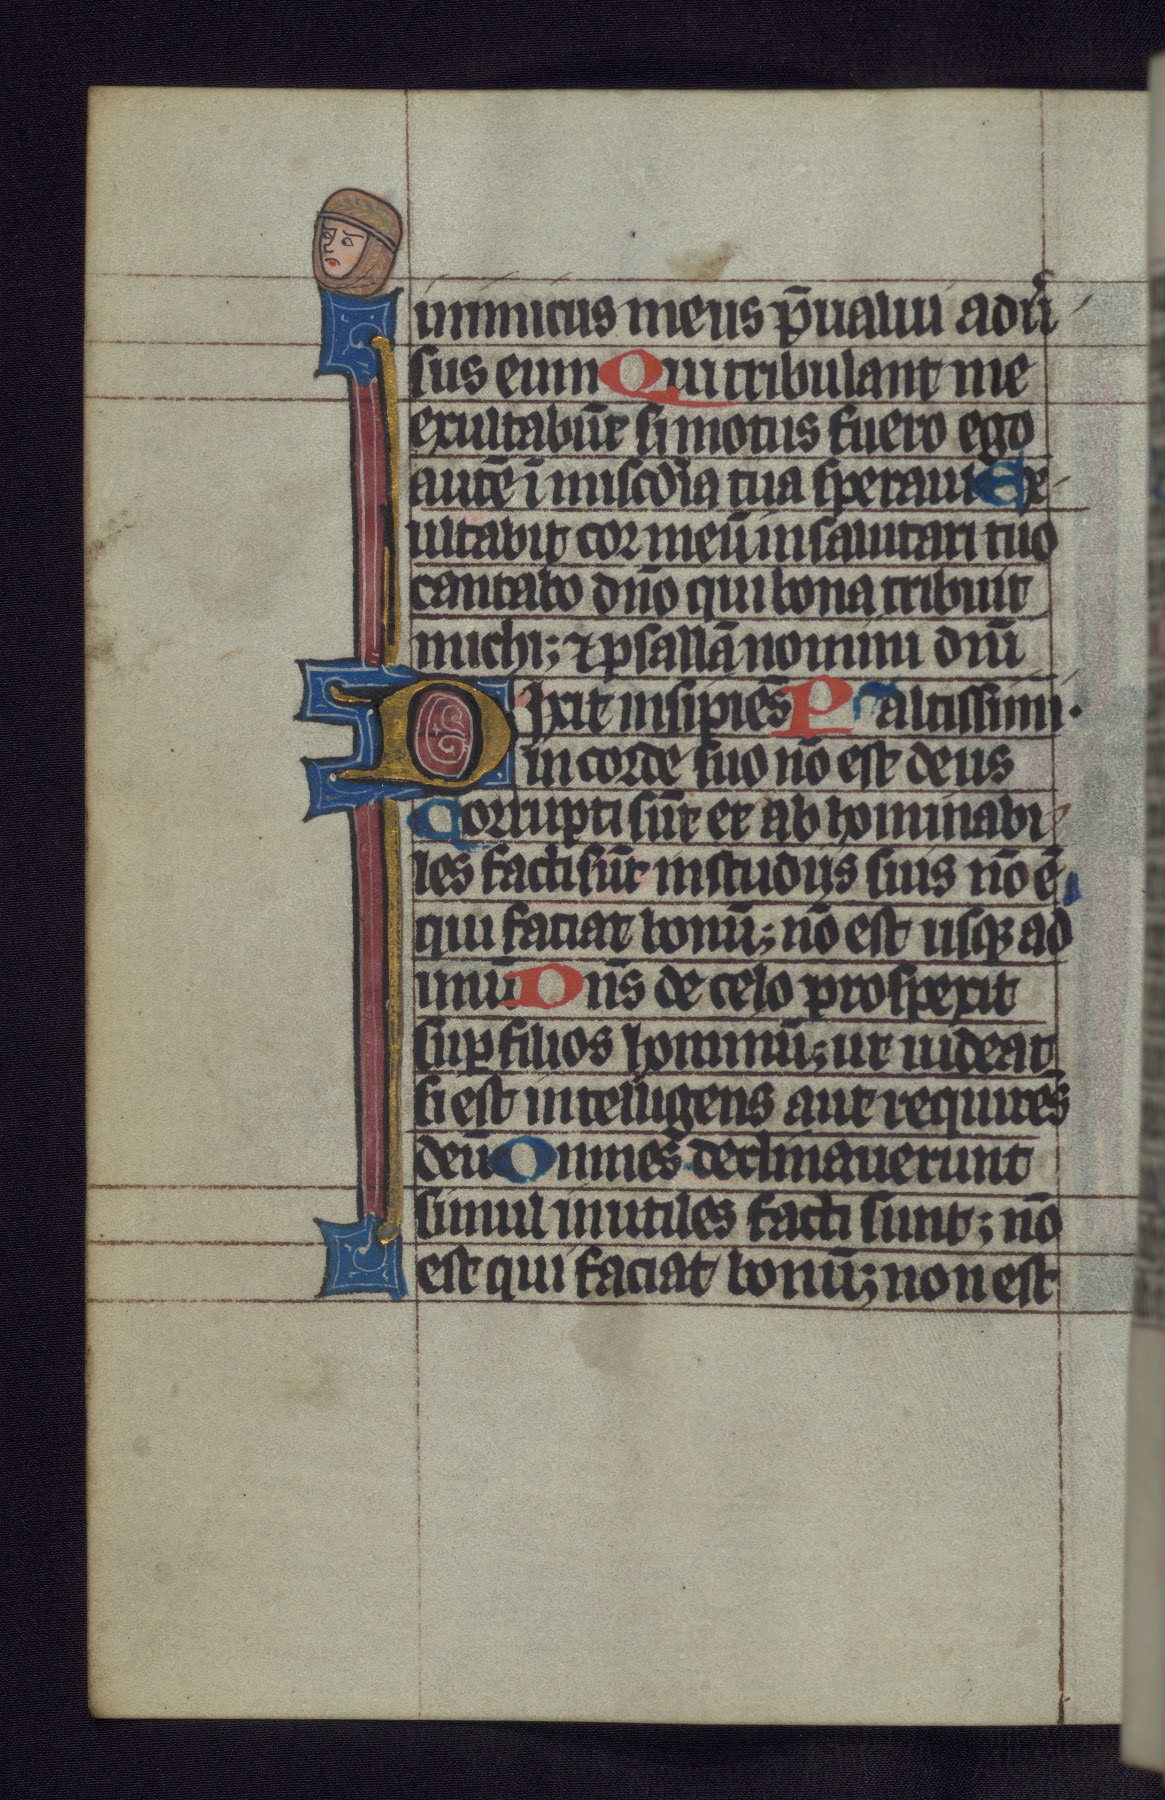 inimicus meus p̄ualui adũ
sus eum Qui tribulant me
exultabūt si motus fuero ego
autē ī misc̄dia tua speraui Ex
ultabit cor meū in salutari tuo
cantabo dn̄o qui bona tribuit
michi; ⁊ psallā nomini dn̄i
Dixit insipiēs P altissimi.
in corde suo nō est deus
Corrupti sūt et abhominabi
les facti sūt in studiis suis nō ē
qui faciat bonū; nō est usq; ad
unū Dn̄s de celo prospexit
sup filios hominū; ut uideat
si est intelligens aut requirēs
deū Omnes declinauerunt
simul inutiles facti sunt; nō
est qui faciat bonū; non est